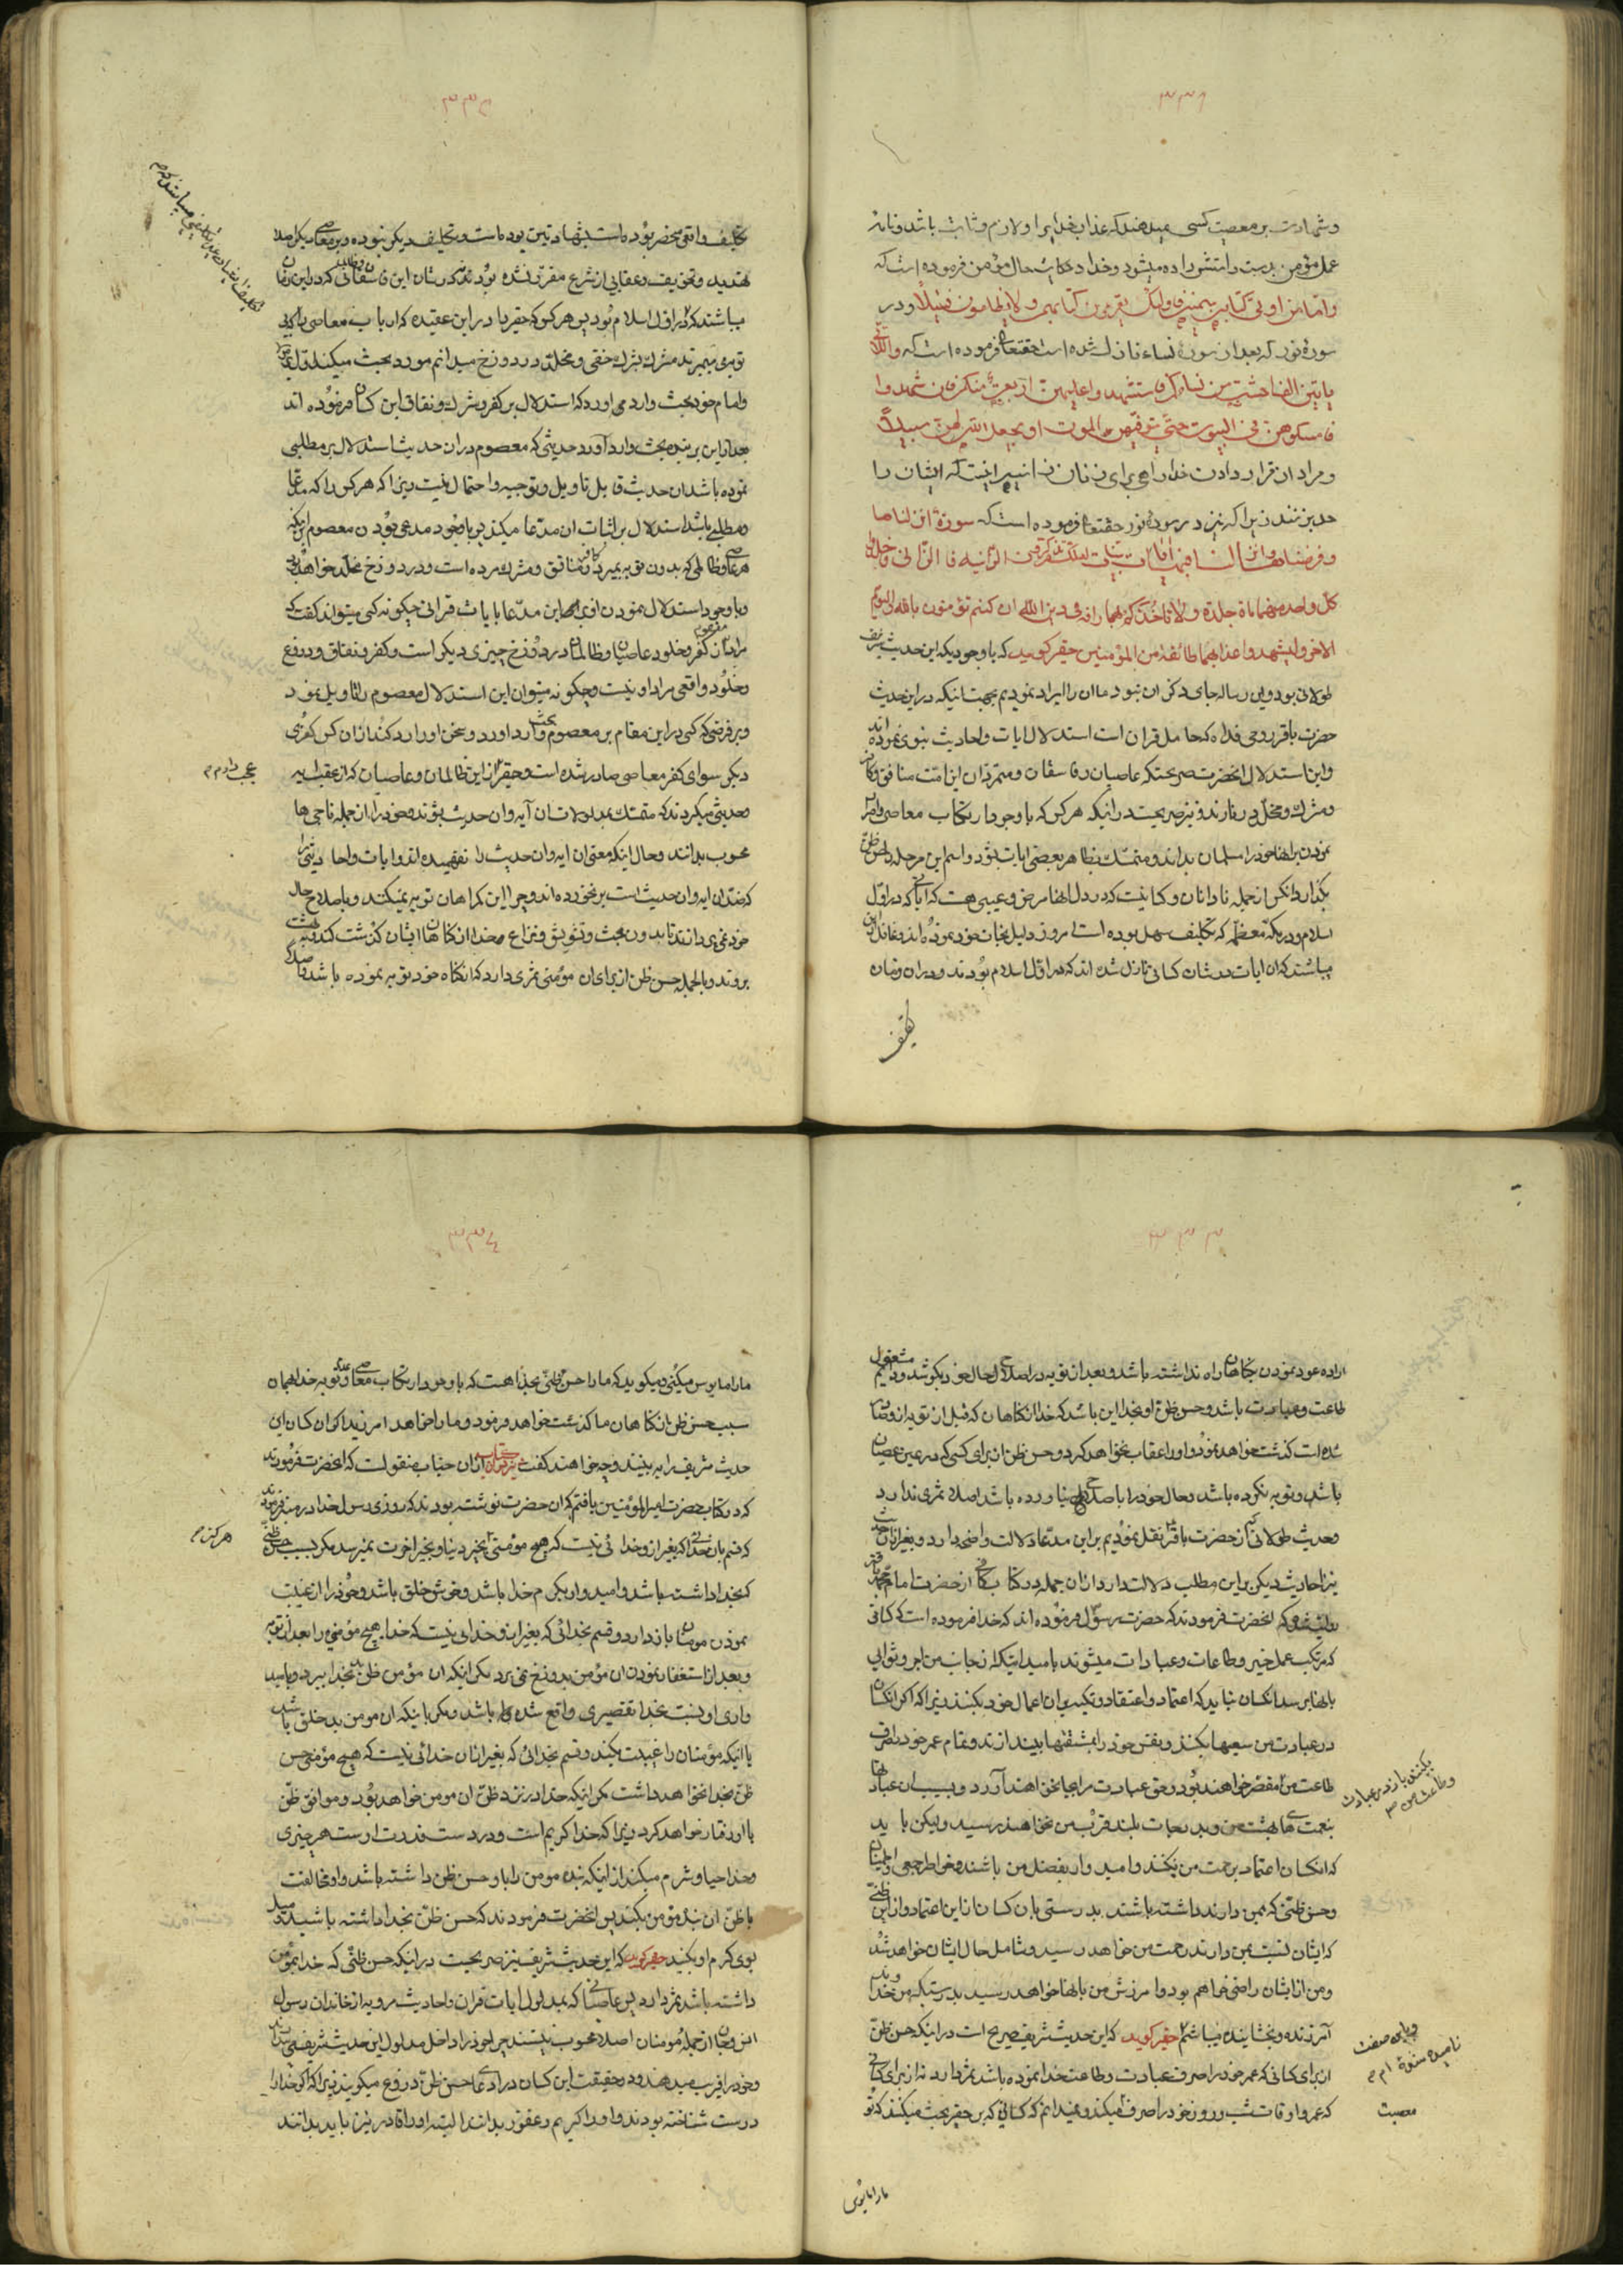 ۳۳۱
وشهادت بر معصیت کسی میدهند که عذاب خدا برا و لازم و ثابت باشد و نامهٔ
عمل مؤمن بدست راستش داده میشود و خدا در حکایت حال مؤمن فرموده است که
واما من اوتی کتابه بیمینه فاولئک یقرءون کتابهم ولا یظلمون فتیلاً و در
سورهٔ نور که بعد از سورهٔ نساء نازل شده است حقتعالی فرموده است که واللاتی
یاتین الفاحشة من نسائکم فاستشهدوا علیهن اربعة منکم فان شهدوا
فامسکوهن فی البیوت حتی یتوفیهن الموت او یجعل الله لهن سبیلاً
و مراد از قرار دادن خدا راهی برای زنان زانیه اینست که ایشان را
حد بزنند زیرا که نیز در سورهٔ نور حقتعالی فرموده است که سورة انزلناها
وفرضناها وانزلنا فیها ایات بینات لعلکم تذکرون الزانیة والزانی فاجلدوا
کل واحد منهما مائة جلدة ولا تاخذکم بهما رافة فی دین الله ان کنتم تؤمنون بالله والیوم
الاخر ولیشهد عذابهما طائفة من المؤمنین حقیر کوید که با وجودیکه این حدیث شریف
طولانی بود و این رساله جای ذکر ان نبود ما ان را ایراد نمودیم بجهت انیکه در این حدیث
حضرت باقر روحی فداه که حامل قران است استدلال بایات واحادیث نبوی نموده اند
واین استدلال انحضرت صریحست که عاصیان و فاسقان و متمردان این امت منافق و کافر
ومشرک ومخلد در نارند و نیز صریحست در اینکه هرکس که با وجود ارتکاب معاصی واصرار
نمودن بر انها خود را مسلمان بداند و متمسک بظاهر بعضی ایات بشود و اسم این مرحله را حسن ظن
بگذارد انکس از جمله نادانان و کسانیست که در دل انها مرض و عیبی هست که ایاتی که در اول
اسلام و در مکه معظمه که تکلیف سهل بوده است امروز دلیل نجات خود نموده اند و غافل از این
میباشند که ان ایات در شان کسانی نازل شده اند که در اول اسلام بودند و در ان زمان
تکلیف
۳۳۲
تکلیف واقعی منحصر بوده است بشهادتین بوده است و تکلیف دیگر نبوده و بر معاصی دیگر اصلا
تهدید و تخویف و عقابی از شرع مقرر نشده بود نه در شان این فاسقان و ظالمانی که در این زمان
میباشند که در اول اسلام نبودند پس هرکس که حقیر را در این عقیده که ارباب معاصی را که بی
توبه میمیرند مشرک بشرک خفی و مخلد در دوزخ میدانم مورد بحث میکند اول بر خدا
وامام خود بحث وارد می اورد که استدلال بر کفر و شرک و نفاق این کسان فرموده اند
بعد از این بر بنده بحث وارد آورد حدیثی که معصوم در ان حدیث استدلال بر مطلبی
نموده باشد ان حدیث قابل تاویل و توجیه و احتمال نیست زیرا که هرکس را که مدعا
ومطلبی باشد استدلال بر اثبات ان مدعا میکند پس با وجود مدعی بودن معصوم بر اینکه
هر عاصی و ظالمی که بدون توبه بمیرد کافر و منافق و مشرک مرده است و در دوزخ مخلد خواهد بود
وبا وجود استدلال نمودن او بر این مدعا بایات قرانی چگونه کسی میتواند گفت که
مراد از کفر و خلود عاصیان و ظالمان در دوزخ چیزی دیگر است و کفر و نفاق و دوزخ
وخلود واقعی مراد او نیست و چگونه میتوان این استدلال معصوم را تاویل نمود
وبر فرضی که کسی در این مقام بر معصوم بحث وارد اورد و سخن او را رد کند از ان کس کفری
دیگر سوای کفر معاصی صادر شده است و حقیر از این ظالمان و عاصیان که از عقب ایه
وحدیثی میگردند که متمسک بمدلولات ان آیه وان حدیث بشوند و خود را از ان جمله ناجی ها
محسوب بدانند وحال اینکه معنی ان ایه و ان حدیث را نفهمیده اند و ایات واحادیثی را
که ضد ان ایه و ان حدیث است بر نخورده اند و چرا این گمراهان توبه نمیکنند و باصلاح حال
خود نمی پردازند تا بدون بحث و تشویش و نزاع خدا از گناهان ایشان گذشت کند و به بهشت
بروند وبالجمله حسن ظن از برای ان مؤمنی ثمری دارد که از گناه خود توبه نموده باشد و اصلا
عجب دارم م
۳۳۳
اراده عود نمودن بگناهان راه نداشته باشد و بعد از توبه در اصلاح حال خود بکوشد و دائم مشغول
طاعت و عبادت باشد و حسن ظن او بخدا این باشد که خدا از گناهان که قبل از توبه از او صادر
شده است گذشت خواهد نمود و او را عقاب نخواهد کرد و حسن ظن از برای کسی که در عین عصیان
باشد و توبه نکرده باشد و حال خود را باصلاح نیاورده باشد اصلا ثمری ندارد
وحدیث طولانی که از حضرت باقر نقل نمودیم بر این مدعا دلالت واضحی دارد و بغیر از ان حدیث
نیز احادیث دیگر بر این مطلب دلالت دارد از ان جمله در کتاب کافی از حضرت امام محمد باقر
روایت شده که انحضرت فرمودند که حضرت رسول فرموده اند که خدا فرموده است که کسانی
که مرتکب عمل خیر و طاعات و عبادات میشوند بامید اینکه از جانب من اجر و ثوابی
بانها برسد انکسان نباید که اعتماد و اعتقاد و تکیه بر ان اعمال خود بکنند زیرا که اگر انکسان
در عبادت من سعیها بکنند و نفس خود را بمشقتها بیندازند و تمام عمر خود را صرف
طاعت من مقصر خواهند بود و حق عبادت مرا بجا نخواهند آورد و بسبب ان عبادتها
بنعمت های بهشت من و بدرجات بلند قرب من نخواهند رسید و لیکن باید
که انکسان اعتماد بر رحمت من بکنند و امیدوار بفضل من باشند و خواطر جمعی و اطمینان
وحسن ظنی که بمن دارند داشته باشند بدرستی بان کسان از این اعتماد و از این ظنی
که ایشان نسبت بمن دارند رحمت من خواهد رسید و شامل حال ایشان خواهد شد
ومن از ایشان راضی خواهم بود و امرزش من بانها خواهد رسید بدرستیکه من خداوند
آمرزنده و بخشاینده میباشم حقیر کوید که این حدیث شریف صریح است در اینکه حسن ظن
از برای کسانی که عمر خود را صرف عبادت و طاعت خدا نموده باشند ثمر دارد نه از برای کسانی
که عمر و اوقات شب و روز خود را صرف میکنند و نمیدانم که کسانی که بر حقیر بحث میکنند که تو
بکنند باز در عبادت
وطاعت من
معصیت
ما را مایوس
۳۳٤
ما را مایوس میکنی و میگویند که ما را حسن ظنی بخدا هست که با وجود ارتکاب معاصی و عدم توبه خدا همان
سبب حسن ظن از گناهان ما گذشت خواهد فرمود و ما را خواهد امرزید اگر ان کسان این
حدیث شریف را به بینند چه خواهند گفت نیز در ان کتاب از ان جناب منقولست که انحضرت فرمودند
که در کتاب حضرت امیرالمؤمنین یافتم که ان حضرت نوشته بودند که روزی رسول خدا در منبر فرمودند
که قسم بان خدائی که بغیر از او خدائی نیست که هیچ مؤمنی بخیر دنیا و بخیر اخرت نمیرسد مگر بسبب حسن ظنی
که بخدا داشته باشد و امیدوار بکرم خدا باشد و خوش خلق باشد و خود را از غیبت
نمودن مومنان باز دارد و قسم بخدائی که بغیر از او خدایی نیست که خدا هیچ مؤمنی را بعد از توبه
وبعد از استغفار نمودن ان مؤمن بدوزخ نمی برد مگر اینکه ان مؤمن ظن بد بخدا ببرد و بامید
واری او نسبت بخدا تقصیری واقع شده باشد و مگر با اینکه ان مومن بد خلق باشد
یا اینکه مؤمنان را غیبت بکند و قسم بخدائی که بغیر از ان خدائی نیست که هیچ مؤمنی حسن
ظن بخدا نخواهد داشت مگر اینکه خدا در نزد ظن ان مومن خواهد بود و موافق ظن
با او رفتار خواهد کرد زیرا که خدا کریم است و در دست قدرت اوست هر چیزی
وخدا حیا و شرم میکند از اینکه بنده مومن را با او حسن ظن داشته باشد و او مخالفت
با ظن ان بنده مؤمن بکند پس انحضرت فرمودند که حسن ظن بخدا داشته باشید و میل
بسوی کرم او بکنید حقیر کوید که این حدیث شریف نیز صریحست در اینکه حسن ظنی که خدا بمؤمن
داشته باشد ثمر دارد پس عاصیانی که بمدلول ایات قران و احادیث مرویه از خاندان رسول
انس وجان از جمله مومنان اصلا محسوب نیستند چرا خود را داخل مدلول این حدیث شریف میدانند
وخود را فریب میدهند و در حقیقت این کسان در ادعای حسن ظن دروغ میگویند زیرا که اگر خدا را
درست شناخته بودند و او را کریم و غفور بدانند البته او را قادر نیز باید بدانند
هرکز م